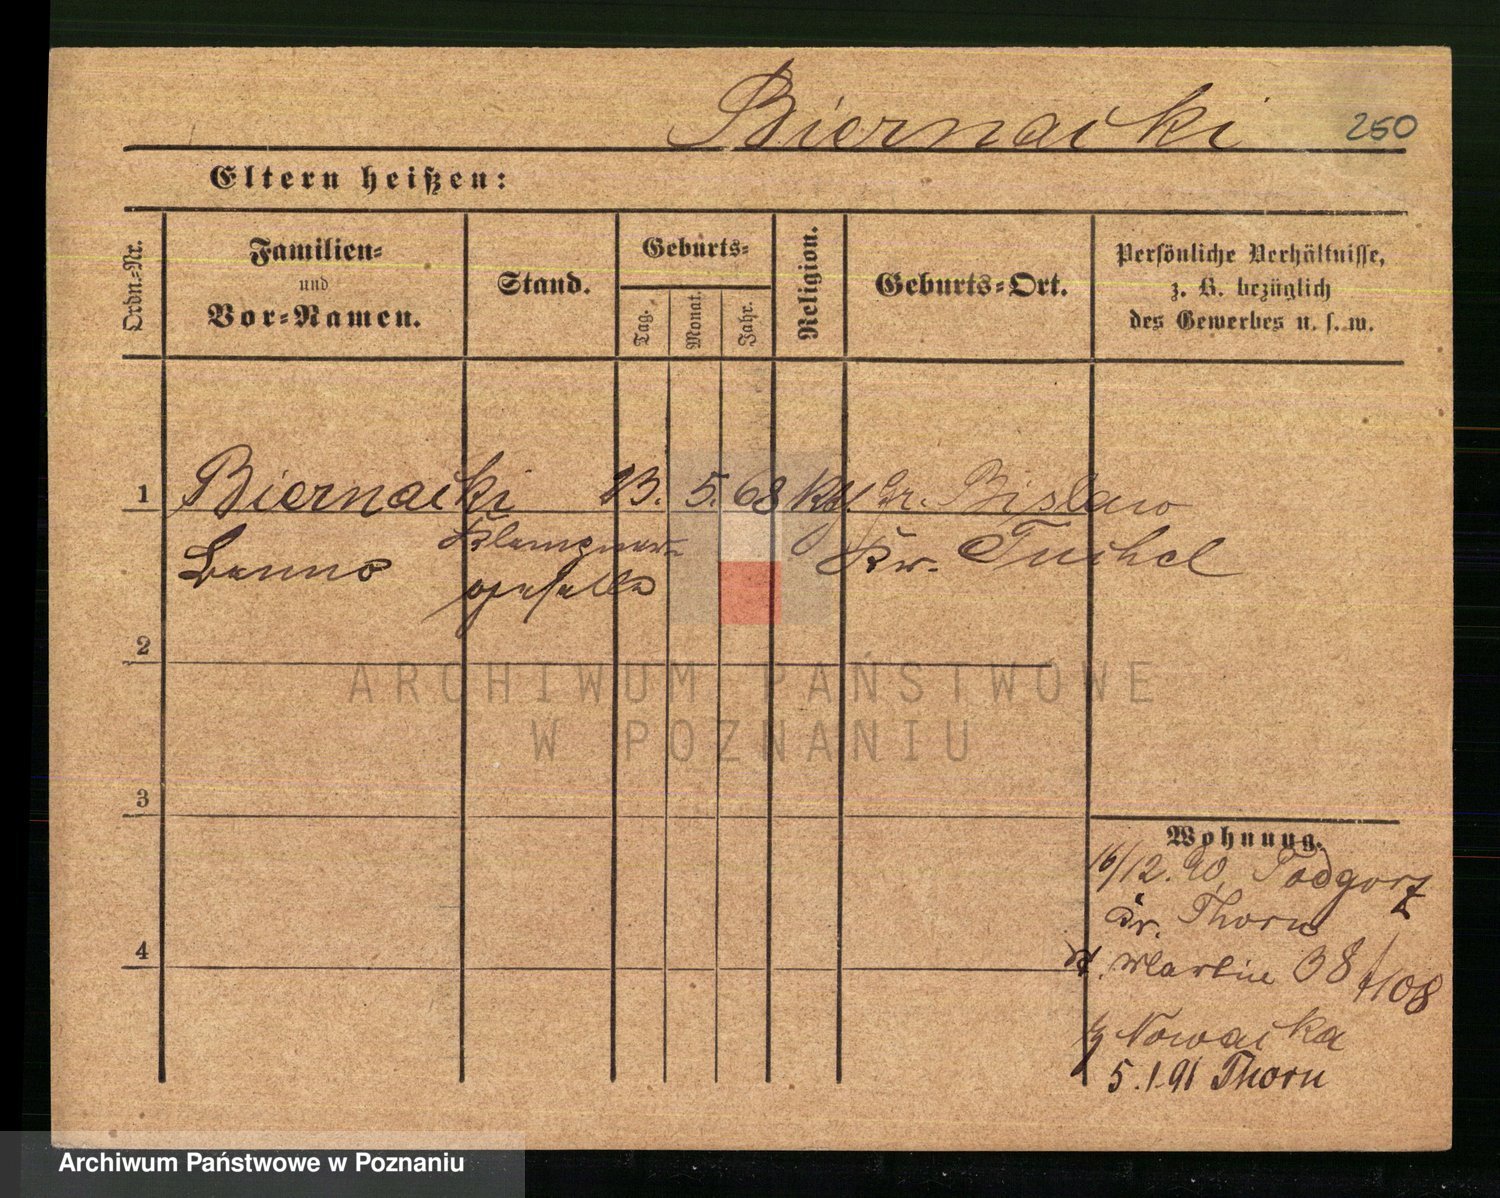 Biernacki
250
Eltern heißen:
Ordn.-Nr.
Familien-
und
Vor-Namen.
Stand.
Geburts-
Tag.
Monat.
Jahr.
Religion.
Geburts-Ort.
Persönliche Verhältnisse,
z. B. bezüglich
des Gewerbes u. s. w.
1 Biernacki 23. 5. 68 Gr. Bislaw
Benno Klempner- Kr. Tuchel
geselle
2
ARCHIWUM PAŃSTWOWE
W POZNANIU
3
Wohnung.
16/12.90. Podgorz
Kr. Thorn
St. Martin 38
b/ Nowacka
5.1.91 Thorn
4
Archiwum Państwowe w Poznaniu